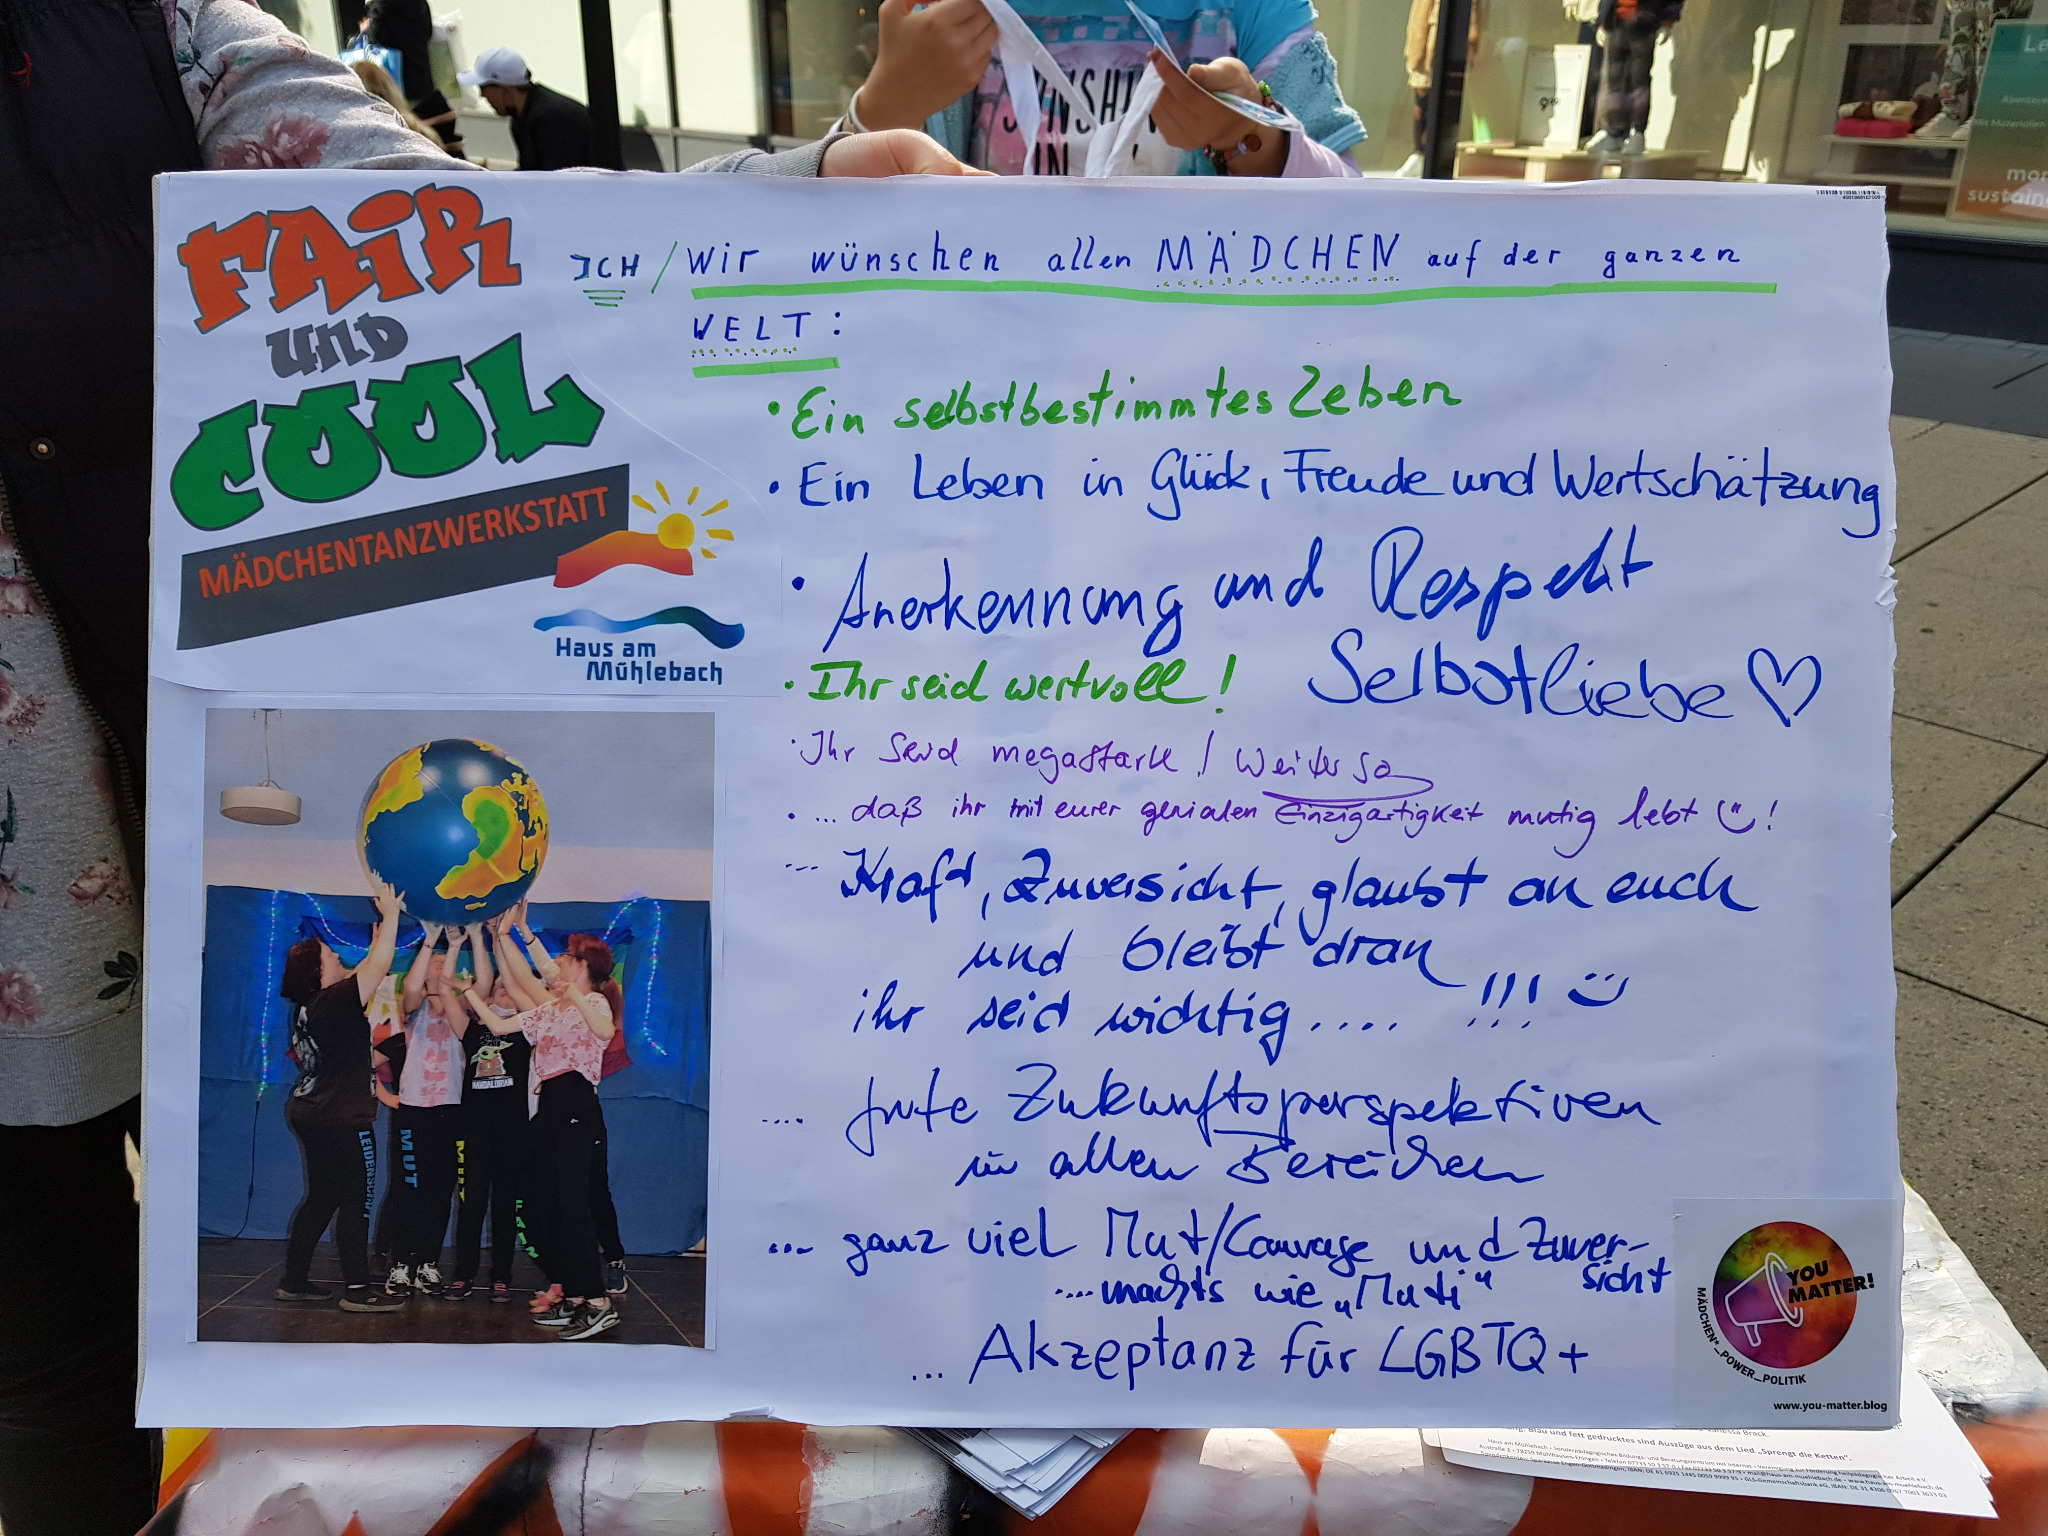 FAIR
UND
COOL
MÄDCHENTANZWERKSTATT
Haus am
Mühlebach
ICH / Wir wünschen allen MÄDCHEN auf der ganzen
WELT:
• Ein selbstbestimmtes Leben
• Ein Leben in Glück, Freude und Wertschätzung
• Anerkennung und Respekt
• Ihr seid wertvoll! Selbstliebe ♡
• Ihr seid megastark! Weiter so
• ... daß ihr mit eurer genialen Einzigartigkeit mutig lebt !
... Kraft, Zuversicht, glaubt an euch
und bleibt dran
ihr seid wichtig .... !!!
.... gute Zukunftsperspektiven
in allen Bereichen
... ganz viel Mut/Courage und Zuver-
sicht
.... machts wie „Muti"
... Akzeptanz für LGBTQ+
LEIDENSCHAFT
MUT
MUT
FAIR
YOU
MATTER!
MÄDCHEN*_POWER_POLITIK
www.you-matter.blog
Blau und fett gedrucktes sind Auszüge aus dem Lied „Sprengt die Ketten".
SUNSHINE
IN
Le
mor
sustain